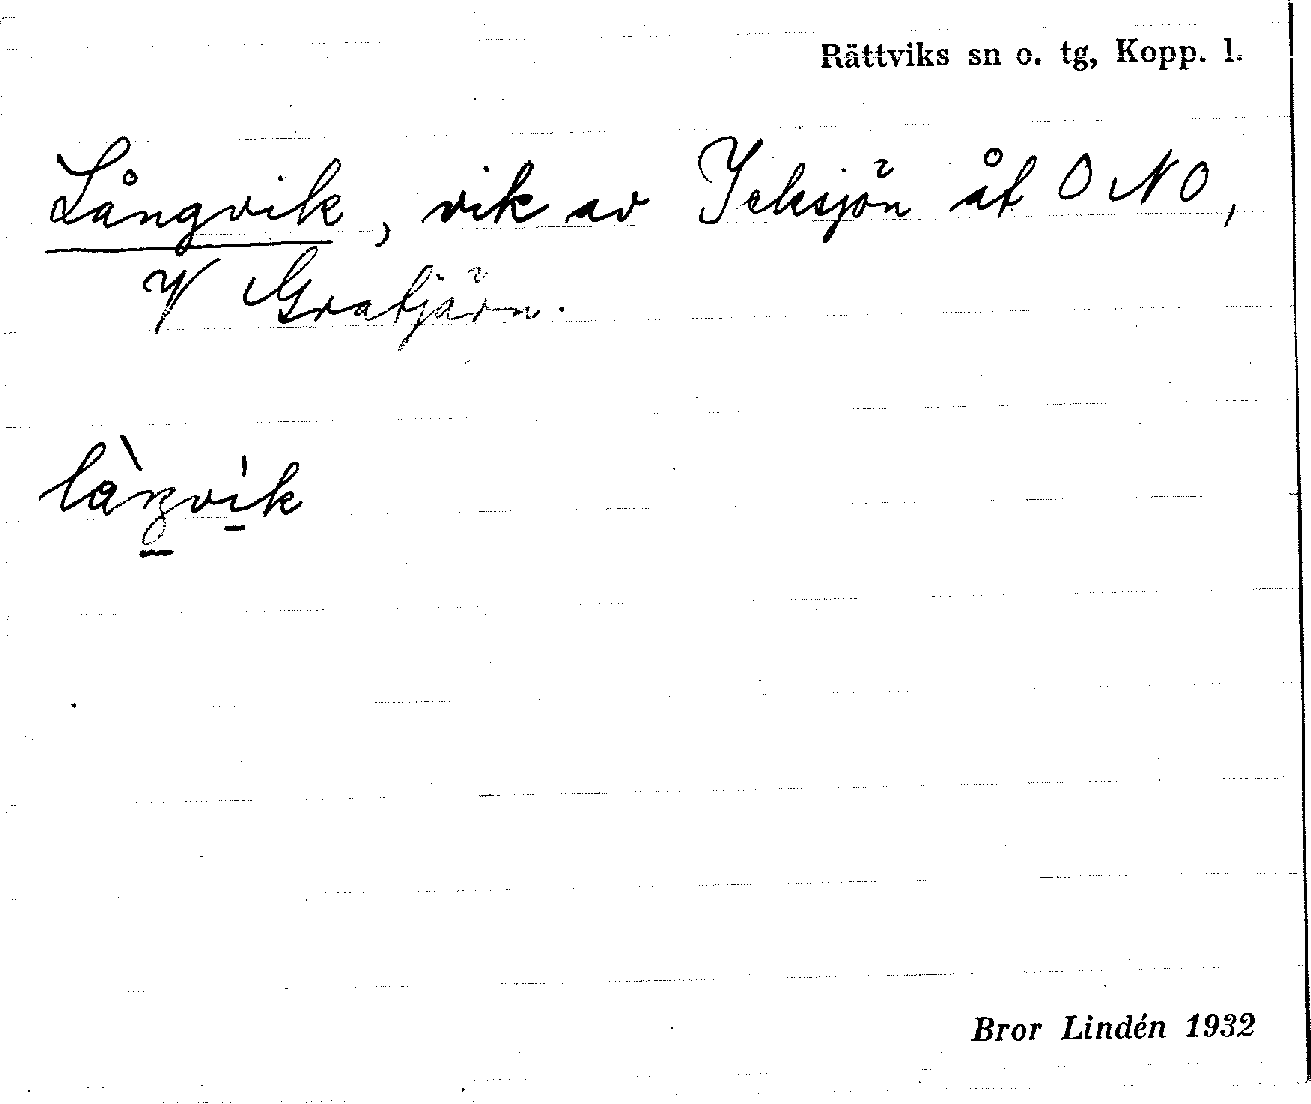 Rättviks sn o. tg, Kopp. l.
Långvik, vik av Ieksjön åt ONO,
V Gratjärn.
là̊ŋvík
Bror Lindén 1932